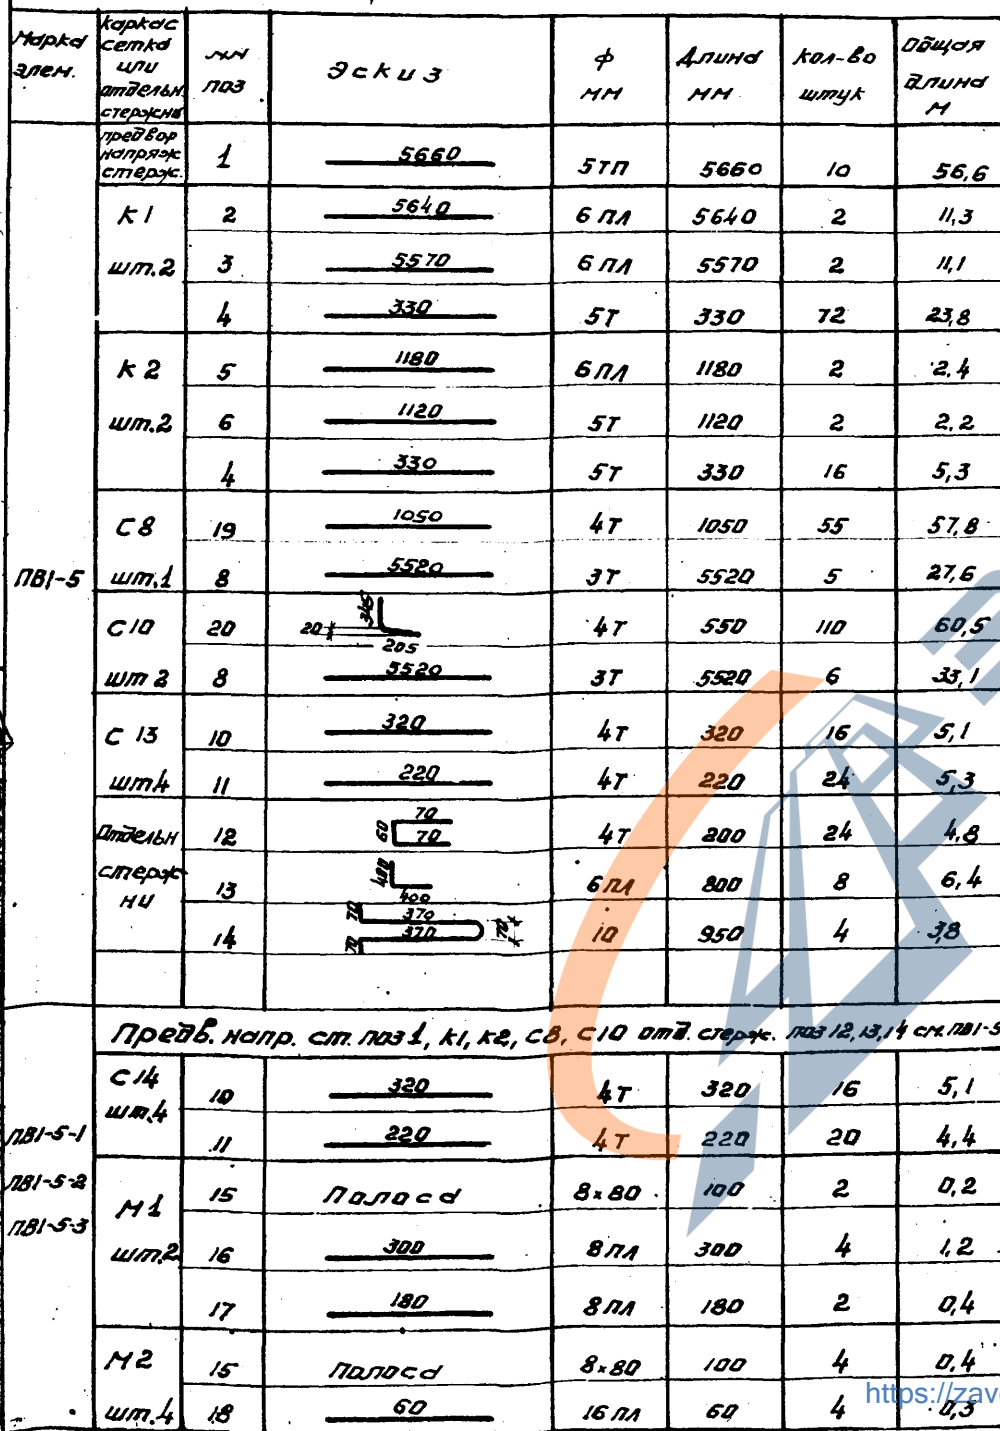 Марка элем. | каркас сетка или отдельн. стержни | №№ поз | Эскиз | ф мм | Длина мм | кол-во штук | Общая длина м
ПВ1-5
предвор напряж стерж. | 1 | 5660 | 5ТП | 5660 | 10 | 56,6
К1 | 2 | 5640 | 6 ПЛ | 5640 | 2 | 11,3
шт.2 | 3 | 5570 | 6 ПЛ | 5570 | 2 | 11,1
4 | 330 | 5Т | 330 | 72 | 23,8
К2 | 5 | 1180 | 6 ПЛ | 1180 | 2 | 2,4
шт.2 | 6 | 1120 | 5Т | 1120 | 2 | 2,2
4 | 330 | 5Т | 330 | 16 | 5,3
С8 | 19 | 1050 | 4Т | 1050 | 55 | 57,8
шт.1 | 8 | 5520 | 3Т | 5520 | 5 | 27,6
С10 | 20 | 345 20 205 | 4Т | 550 | 110 | 60,5
шт 2 | 8 | 5520 | 3Т | 5520 | 6 | 33,1
С 13 | 10 | 320 | 4Т | 320 | 16 | 5,1
шт4 | 11 | 220 | 4Т | 220 | 24 | 5,3
Отдельн | 12 | 60 70 70 | 4Т | 200 | 24 | 4,8
стерж | 13 | 400 400 | 6 ПЛ | 800 | 8 | 6,4
ни | 14 | 70 370 370 70 70 | 10 | 950 | 4 | 3,8
Предв. напр. ст. поз 1, К1, К2, С8, С10 отд. стерж. поз 12, 13, 14 см. ПВ1-5
ПВ1-5-1
ПВ1-5-2
ПВ1-5-3
С14 | 10 | 320 | 4Т | 320 | 16 | 5,1
шт.4 | 11 | 220 | 4Т | 220 | 20 | 4,4
М1 | 15 | Полоса | 8×80 | 100 | 2 | 0,2
шт.2 | 16 | 300 | 8 ПЛ | 300 | 4 | 1,2
17 | 180 | 8 ПЛ | 180 | 2 | 0,4
М2 | 15 | Полоса | 8×80 | 100 | 4 | 0,4
шт.4 | 18 | 60 | 16 ПЛ | 60 | 4 | 0,3
https://zav